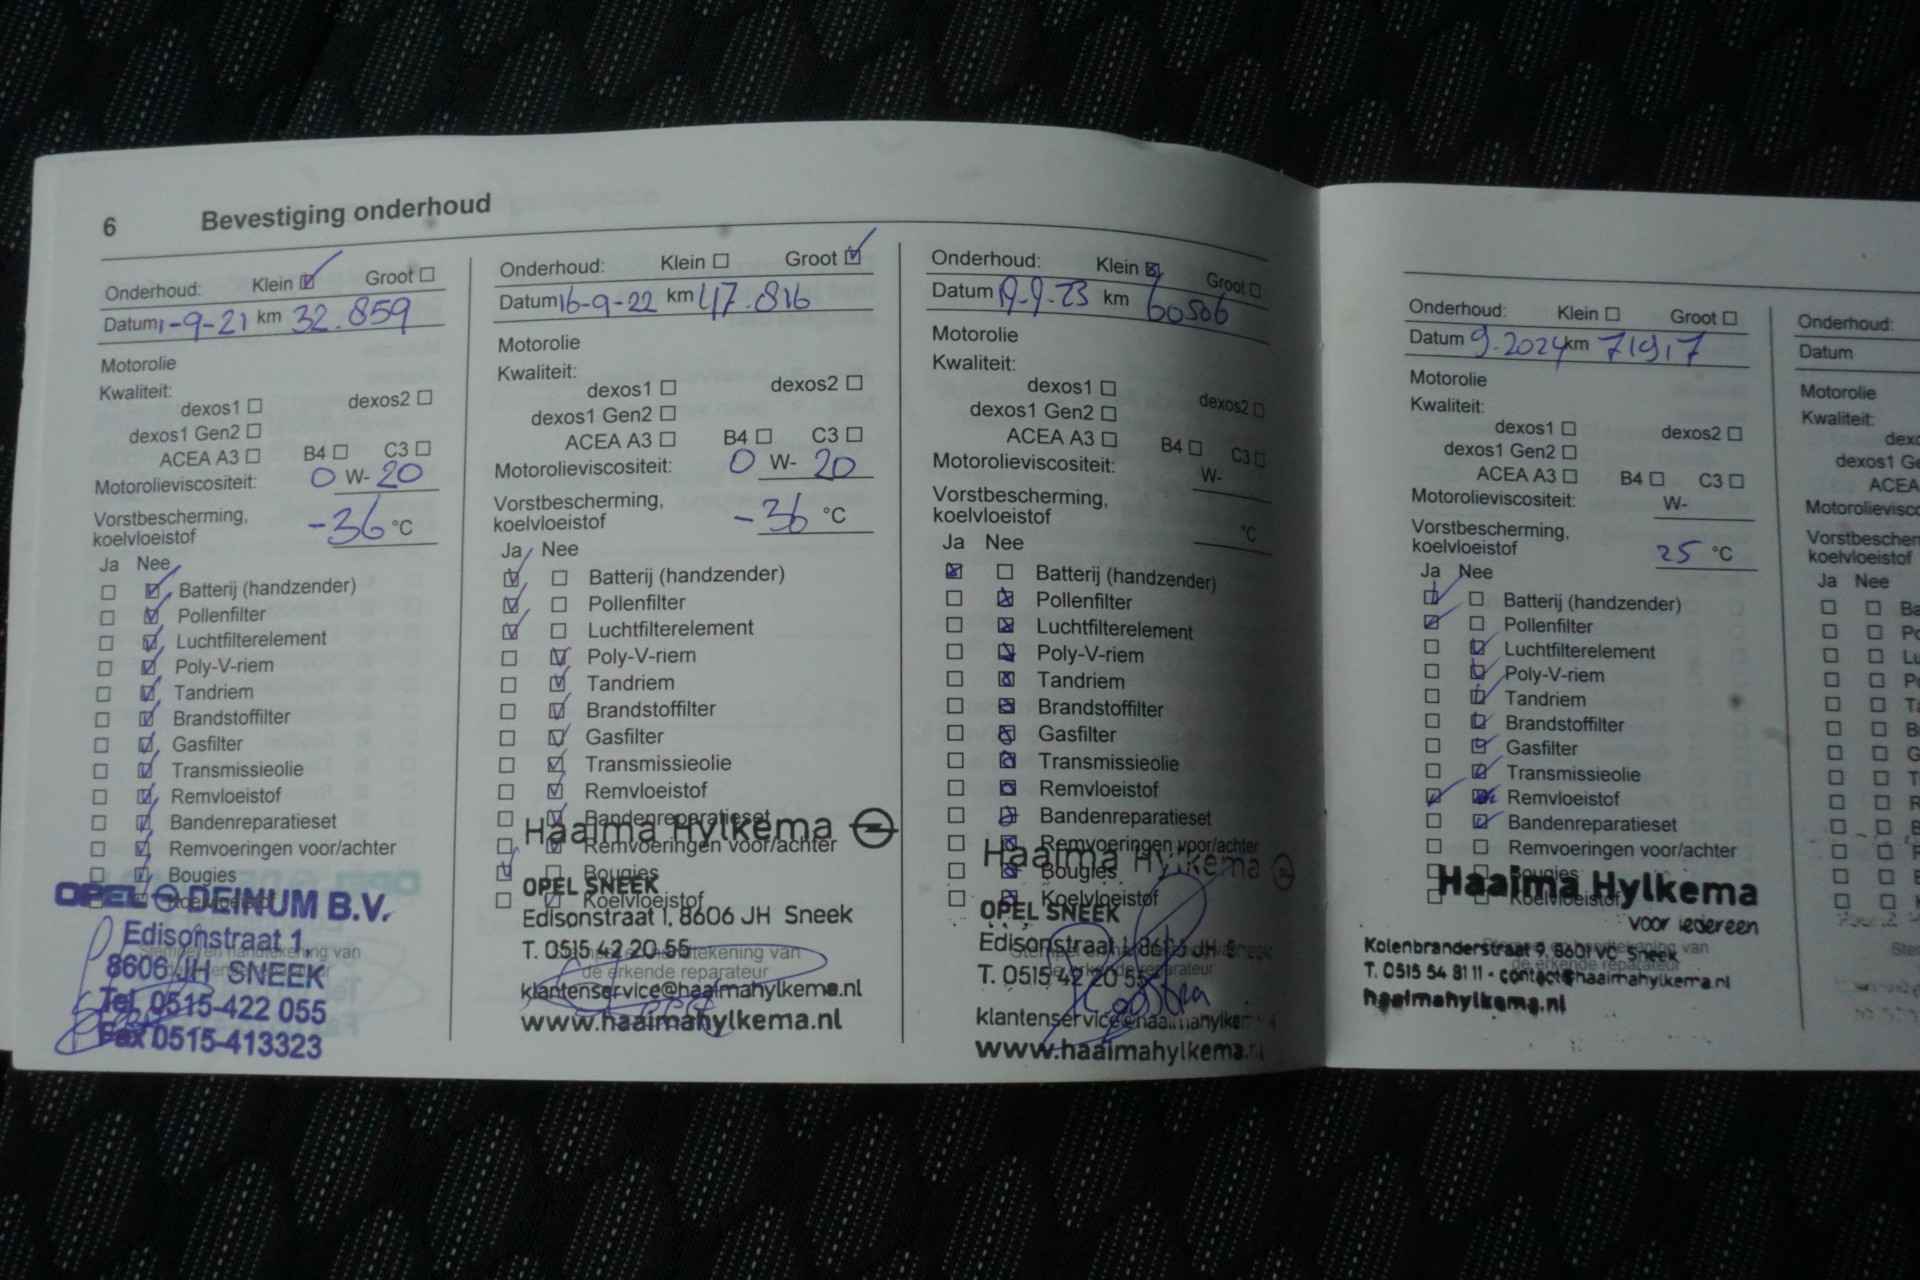 6 Bevestiging onderhoud
Onderhoud: Klein Groot
Datum 1-9-21 km 32.859
Motorolie
Kwaliteit:
dexos1 dexos2
dexos1 Gen2
ACEA A3 B4 C3
Motorolieviscositeit: 0 W- 20
Vorstbescherming,
koelvloeistof -36 °C
Ja Nee
Batterij (handzender)
Pollenfilter
Luchtfilterelement
Poly-V-riem
Tandriem
Brandstoffilter
Gasfilter
Transmissieolie
Remvloeistof
Bandenreparatieset
Remvoeringen voor/achter
Bougies
Koelvloeistof
OPEL DEINUM B.V.
Edisonstraat 1
8606 JH SNEEK
Tel. 0515-422 055
Fax 0515-413323
Onderhoud: Klein Groot
Datum 16-9-22 km 47.816
Motorolie
Kwaliteit:
dexos1 dexos2
dexos1 Gen2
ACEA A3 B4 C3
Motorolieviscositeit: 0 W- 20
Vorstbescherming,
koelvloeistof -36 °C
Ja Nee
Batterij (handzender)
Pollenfilter
Luchtfilterelement
Poly-V-riem
Tandriem
Brandstoffilter
Gasfilter
Transmissieolie
Remvloeistof
Bandenreparatieset
Haaima Hylkema
Remvoeringen voor/achter
Bougies
OPEL SNEEK
Koelvloeistof
Edisonstraat 1, 8606 JH Sneek
T. 0515 42 20 55
de erkende reparateur
klantenservice@haaimahylkema.nl
www.haaimahylkema.nl
Onderhoud: Klein Groot
Datum 19-9-23 km 60506
Motorolie
Kwaliteit:
dexos1 dexos2
dexos1 Gen2
ACEA A3 B4 C3
Motorolieviscositeit: W-
Vorstbescherming,
koelvloeistof °C
Ja Nee
Batterij (handzender)
Pollenfilter
Luchtfilterelement
Poly-V-riem
Tandriem
Brandstoffilter
Gasfilter
Transmissieolie
Remvloeistof
Bandenreparatieset
Remvoeringen voor/achter
Haaima Hylkema
Bougies
Koelvloeistof
OPEL SNEEK
Edisonstraat 1, 8606 JH
T. 0515 42 20 55
klantenservice@haaimahylkema
www.haaimahylkema.nl
Onderhoud: Klein Groot
Datum 9-2024 km 71917
Motorolie
Kwaliteit:
dexos1 dexos2
dexos1 Gen2
ACEA A3 B4 C3
Motorolieviscositeit: W-
Vorstbescherming,
koelvloeistof 25 °C
Ja Nee
Batterij (handzender)
Pollenfilter
Luchtfilterelement
Poly-V-riem
Tandriem
Brandstoffilter
Gasfilter
Transmissieolie
Remvloeistof
Bandenreparatieset
Remvoeringen voor/achter
Bougies
Haaima Hylkema
Koelvloeistof
voor iedereen
Kolenbranderstraat 9, 8601 VC Sneek
de erkende reparateur
T. 0515 54 81 11 - contact@haaimahylkema.nl
haaimahylkema.nl
Onderhoud:
Datum
Motorolie
Kwaliteit:
dexo
dexos1 Ge
ACEA
Motorolievisco
Vorstbescher
koelvloeistof
Ja Nee